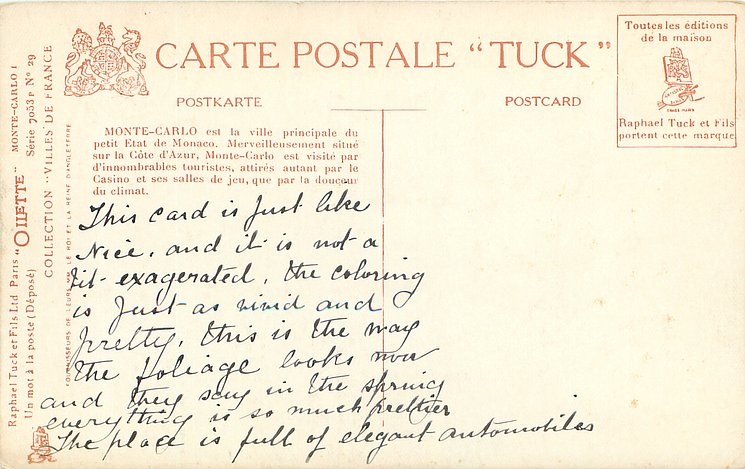 CARTE POSTALE "TUCK"
POSTKARTE
POSTCARD
Toutes les éditions
de la maison
TRADE MARK
Raphael Tuck et Fils
portent cette marque
Raphael Tuck et Fils Ltd Paris "OILETTE" MONTE-CARLO I
Un mot à la poste (Déposé) Série 7053 P Nº 29
COLLECTION "VILLES DE FRANCE
FOURNISSEURS DE LEURS MM. LE ROI ET LA REINE D'ANGLETERRE
MONTE-CARLO est la ville principale du
petit Etat de Monaco. Merveilleusement situé
sur la Côte d'Azur, Monte-Carlo est visité par
d'innombrables touristes, attirés autant par le
Casino et ses salles de jeu, que par la douceur
du climat.
This card is just like
Nice, and it is not a
bit exagerated, the coloring
is just as vivid and
pretty, this is the way
the foliage looks now
and they say in the spring
everything is so much prettier
The place is full of elegant automobiles